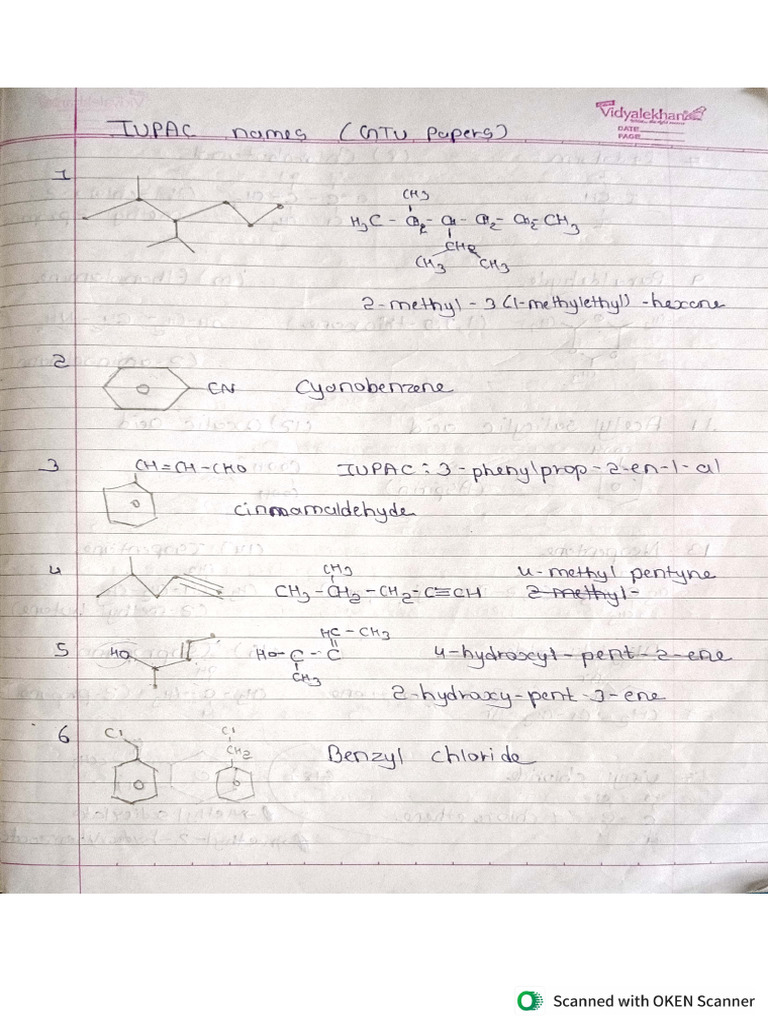 Vidyalekhan
DATE
PAGE
IUPAC names (GTU Papers)
1
CH3
H3C - CH2 - CH - CH2 - CH2 - CH3
CH2
CH3 CH3
2-methyl-3(1-methylethyl)-hexene
2
CN Cyanobenzene
3 CH=CH-CHO IUPAC: 3-phenylprop-2-en-1-al
cinnamaldehyde
4 CH3 4-methyl pentyne
CH3-CH2-CH2-C≡CH 2-methyl-
5 HC-CH3
HO HO-C-C 4-hydroxyl-pent-2-ene
CH3
2-hydroxy-pent-3-ene
6 Cl Cl
CH2 Benzyl chloride
Scanned with OKEN Scanner